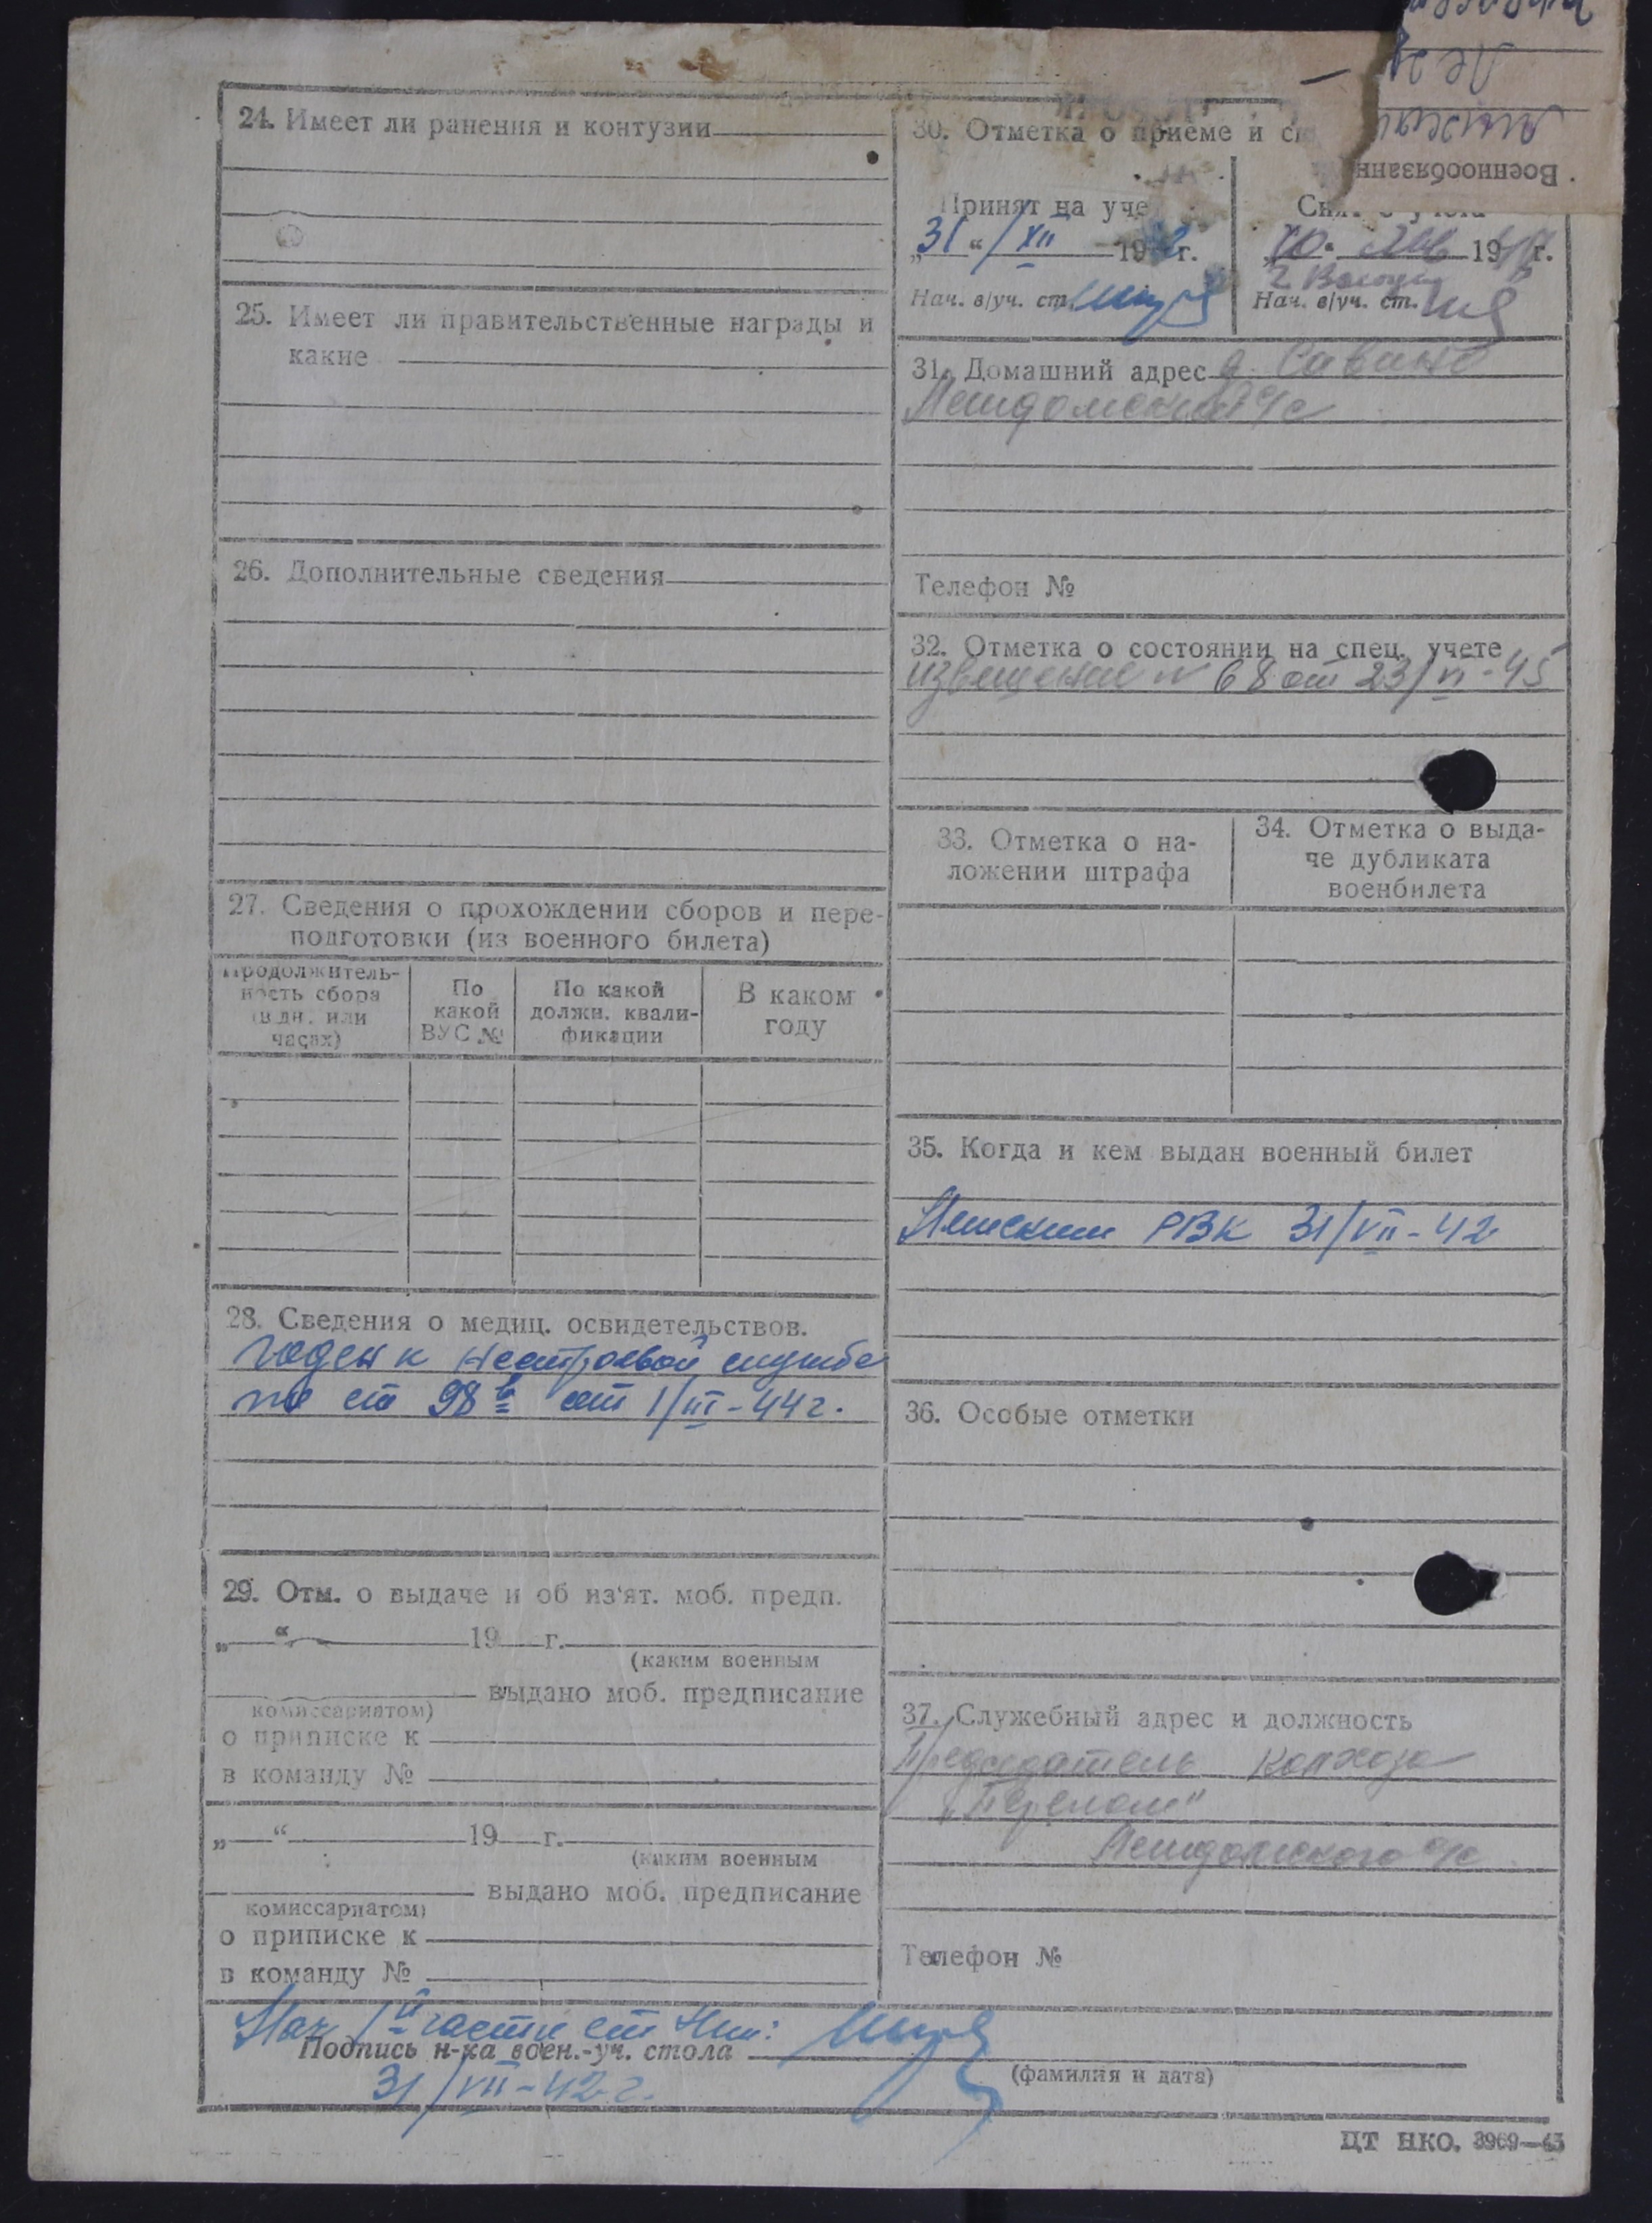 24. Имеет ли ранения и контузии
25. Имеет ли правительственные награды и
какие
26. Дополнительные сведения
27. Сведения о прохождении сборов и пере-
подготовки (из военного билета)
Продолжитель-
ность сбора
(в дн. или
часах)
По
какой
ВУС №
По какой
должн. квали-
фикации
В каком
году
28. Сведения о медиц. освидетельствов.
годен к нестроевой службе
по ст 98 в от 1/III-44 г.
29. Отм. о выдаче и об из'ят. моб. предп.
„ “ 19 г.
(каким военным
выдано моб. предписание
комиссариатом)
о приписке к
в команду №
„ “ 19 г.
(каким военным
выдано моб. предписание
комиссариатом)
о приписке к
в команду №
30. Отметка о приеме и
Военнообязанн
Принят на уче
„31“ /XII 19 г.
Нач. в/уч. ст.
19 г.
Нач. в/уч. ст.
31. Домашний адрес д. Савино
с/с
Телефон №
32. Отметка о состоянии на спец. учете
извещение № 68 от 23/VI-45
33. Отметка о на-
ложении штрафа
34. Отметка о выда-
че дубликата
военбилета
35. Когда и кем выдан военный билет
РВК 31/VII-42
36. Особые отметки
37. Служебный адрес и должность
Председатель колхоза
„Перелом“
с/с
Телефон №
Нач 1й части ст
Подпись н-ка воен.-уч. стола
(фамилия и дата)
31/VII-42 г.
ЦТ НКО. 3969—43